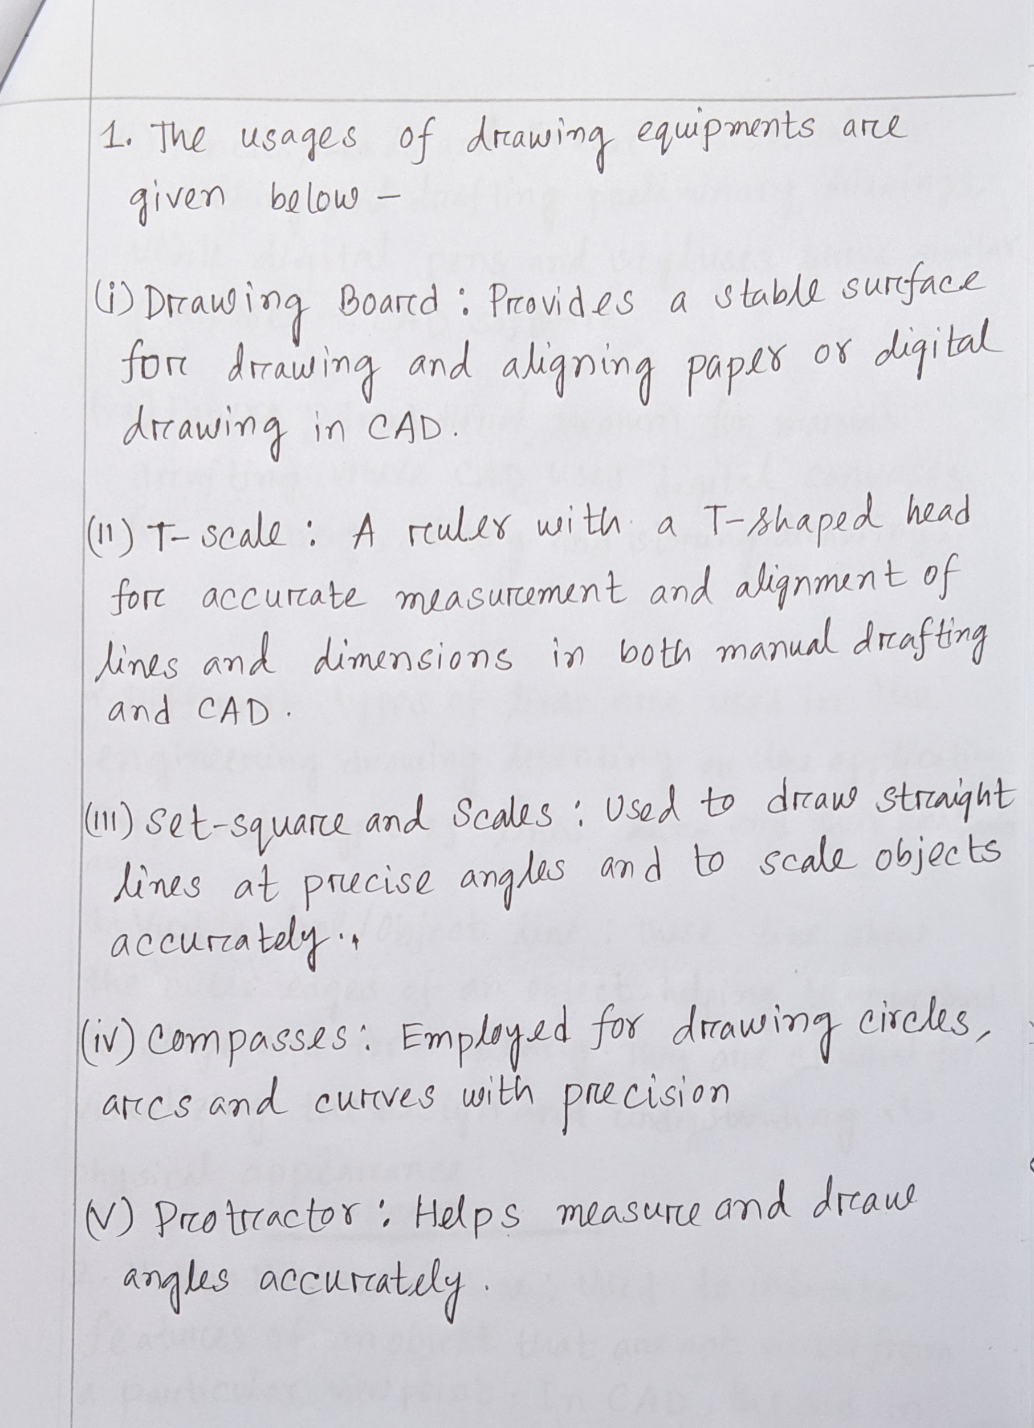 1. The usages of drawing equipments are
given below –
(i) Drawing Board : Provides a stable surface
for drawing and aligning paper or digital
drawing in CAD.
(II) T-scale : A ruler with a T-shaped head
for accurate measurement and alignment of
lines and dimensions in both manual drafting
and CAD.
(III) Set-square and Scales : Used to draw straight
lines at precise angles and to scale objects
accurately.
(iv) Compasses : Employed for drawing circles,
arcs and curves with precision
(V) Protractor : Helps measure and draw
angles accurately.